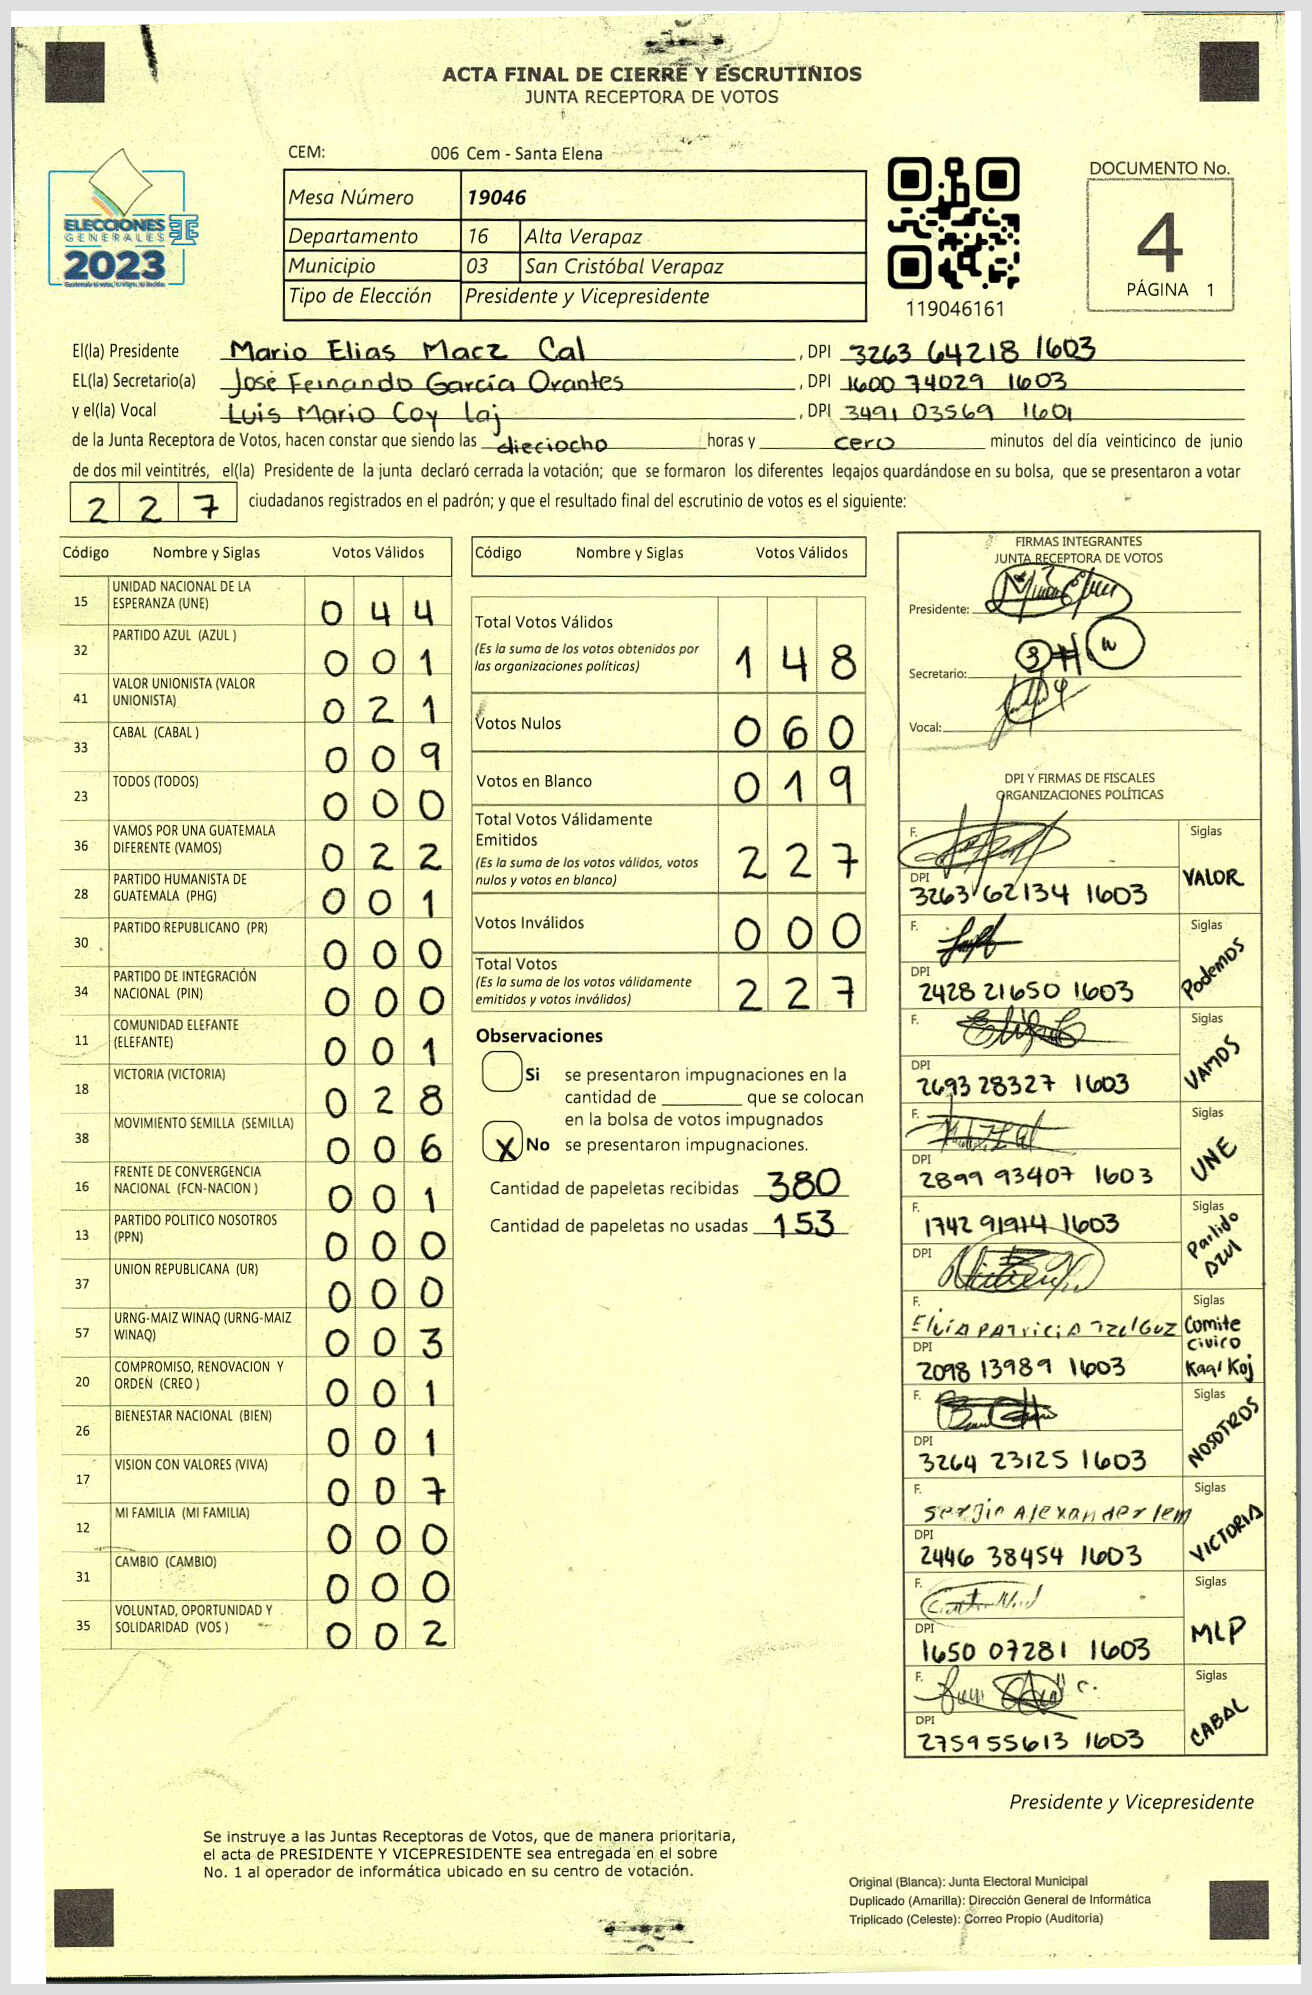 ACTA FINAL DE CIERRE Y ESCRUTINIOS
JUNTA RECEPTORA DE VOTOS
CEM: 006 Cem - Santa Elena
Mesa Número 19046
Departamento 16 Alta Verapaz
Municipio 03 San Cristóbal Verapaz
Tipo de Elección Presidente y Vicepresidente
ELECCIONES
GENERALES
2023
TSE
119046161
DOCUMENTO No.
4
PÁGINA 1
El(la) Presidente Mario Elias Macz Cal , DPI 3263 64218 1603
EL(la) Secretario(a) José Fernando García Orantes , DPI 1600 74029 1603
y el(la) Vocal Luis Mario Coy Laj , DPI 3491 03569 1601
de la Junta Receptora de Votos, hacen constar que siendo las dieciocho horas y cero minutos del día veinticinco de junio
de dos mil veintitrés, el(la) Presidente de la junta declaró cerrada la votación; que se formaron los diferentes legajos guardándose en su bolsa, que se presentaron a votar
2 2 7 ciudadanos registrados en el padrón; y que el resultado final del escrutinio de votos es el siguiente:
Código Nombre y Siglas Votos Válidos
15 UNIDAD NACIONAL DE LA ESPERANZA (UNE) 0 4 4
32 PARTIDO AZUL (AZUL ) 0 0 1
41 VALOR UNIONISTA (VALOR UNIONISTA) 0 2 1
33 CABAL (CABAL ) 0 0 9
23 TODOS (TODOS) 0 0 0
36 VAMOS POR UNA GUATEMALA DIFERENTE (VAMOS) 0 2 2
28 PARTIDO HUMANISTA DE GUATEMALA (PHG) 0 0 1
30 PARTIDO REPUBLICANO (PR) 0 0 0
34 PARTIDO DE INTEGRACIÓN NACIONAL (PIN) 0 0 0
11 COMUNIDAD ELEFANTE (ELEFANTE) 0 0 1
18 VICTORIA (VICTORIA) 0 2 8
38 MOVIMIENTO SEMILLA (SEMILLA) 0 0 6
16 FRENTE DE CONVERGENCIA NACIONAL (FCN-NACION ) 0 0 1
13 PARTIDO POLITICO NOSOTROS (PPN) 0 0 0
37 UNION REPUBLICANA (UR) 0 0 0
57 URNG-MAIZ WINAQ (URNG-MAIZ WINAQ) 0 0 3
20 COMPROMISO, RENOVACION Y ORDEN (CREO ) 0 0 1
26 BIENESTAR NACIONAL (BIEN) 0 0 1
17 VISION CON VALORES (VIVA) 0 0 7
12 MI FAMILIA (MI FAMILIA) 0 0 0
31 CAMBIO (CAMBIO) 0 0 0
35 VOLUNTAD, OPORTUNIDAD Y SOLIDARIDAD (VOS ) 0 0 2
Código Nombre y Siglas Votos Válidos
Total Votos Válidos 1 4 8
(Es la suma de los votos obtenidos por
las organizaciones políticas)
Votos Nulos 0 6 0
Votos en Blanco 0 1 9
Total Votos Válidamente
Emitidos 2 2 7
(Es la suma de los votos válidos, votos
nulos y votos en blanco)
Votos Inválidos 0 0 0
Total Votos 2 2 7
(Es la suma de los votos válidamente
emitidos y votos inválidos)
Observaciones
Si se presentaron impugnaciones en la
cantidad de ________ que se colocan
en la bolsa de votos impugnados
X No se presentaron impugnaciones.
Cantidad de papeletas recibidas 380
Cantidad de papeletas no usadas 153
FIRMAS INTEGRANTES
JUNTA RECEPTORA DE VOTOS
Presidente:
Secretario:
Vocal:
DPI Y FIRMAS DE FISCALES
ORGANIZACIONES POLÍTICAS
F. Siglas
DPI 3263 62134 1603 VALOR
F. Siglas
DPI 2428 21650 1603 Podemos
F. Siglas
DPI 2693 28327 1603 VAMOS
F. Siglas
DPI 2899 93407 1603 UNE
F. 1742 91914 1603 Siglas
DPI Partido Azul
F. Siglas
DPI 2098 13989 1603 Comite Civico Kaqi Koj
F. Siglas
DPI 3264 23125 1603 NOSOTROS
F. Sergio Alexander Iem Siglas
DPI 2446 38454 1603 VICTORIA
F. Siglas
DPI 1650 07281 1603 MLP
F. Siglas
DPI 2759 55613 1603 CABAL
Presidente y Vicepresidente
Se instruye a las Juntas Receptoras de Votos, que de manera prioritaria,
el acta de PRESIDENTE Y VICEPRESIDENTE sea entregada en el sobre
No. 1 al operador de informática ubicado en su centro de votación.
Original (Blanca): Junta Electoral Municipal
Duplicado (Amarilla): Dirección General de Informática
Triplicado (Celeste): Correo Propio (Auditoria)